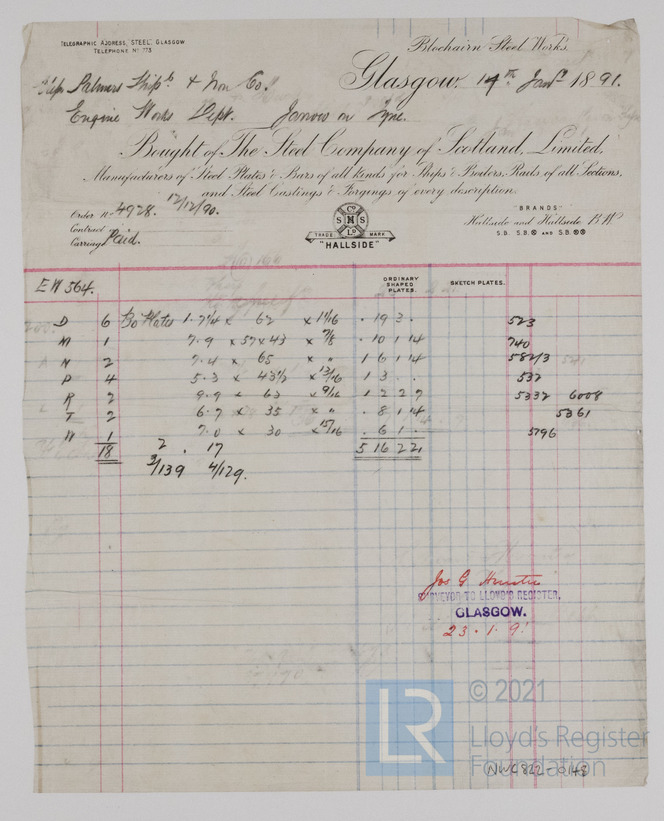 TELEGRAPHIC ADDRESS, "STEEL" GLASGOW
TELEPHONE No 775
Blochairn Steel Works.
Glasgow. 14th Jany 1891.
Palmers Ship. & Iron Co.
Engine Works Dept. Jarrow on Tyne.
Bought of The Steel Company of Scotland, Limited,
Manufacturers of Steel Plates & Bars of all kinds for Ships & Boilers, Rails of all Sections,
and Steel Castings & Forgings of every description.
Order No 4928. 12/12/90.
Contract
Carriage Paid.
Co
S M S
Ld
TRADE MARK
"HALLSIDE"
"BRANDS"
Hallside and Hallside B.W
S.B. S.B.® AND S.B.®®
ORDINARY SHAPED PLATES.
SKETCH PLATES.
EW 564.
D 6 Bo Plates 1. 7 1/4 x 62 x 11/16 . 19 3 . 523
M 1 7.9 x 57 x 43 x 7/8 . 10 1 14 740
N 2 7.4 x 65 x " 1 6 1 14 582/3
P 4 5.3 x 43 1/2 x 13/16 1 3 . . 532
R 2 9.9 x 63 x 9/16 1 2 2 7 5332 6008
T 2 6.7 x 35 x " . 8 1 14 5361
W 1 7.0 x 30 x 15/16 . 6 1 . 5796
18 2 . 17 5 16 2 21
3/139 4/129.
Jas G Hunter
SURVEYOR TO LLOYD'S REGISTER,
GLASGOW.
23.1.91
LR
© 2021
Lloyd's Register
Foundation
NWC822-0148